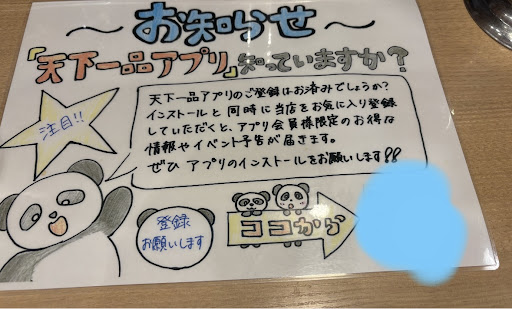 ～お知らせ～
「天下一品アプリ」知っていますか？
注目!!
天下一品アプリのご登録はお済みでしょうか？
インストールと同時に当店をお気に入り登録
していただくと、アプリ会員様限定のお得な
情報やイベント予告が届きます。
ぜひ アプリのインストールをお願いします!!
登録
お願いします
ココから